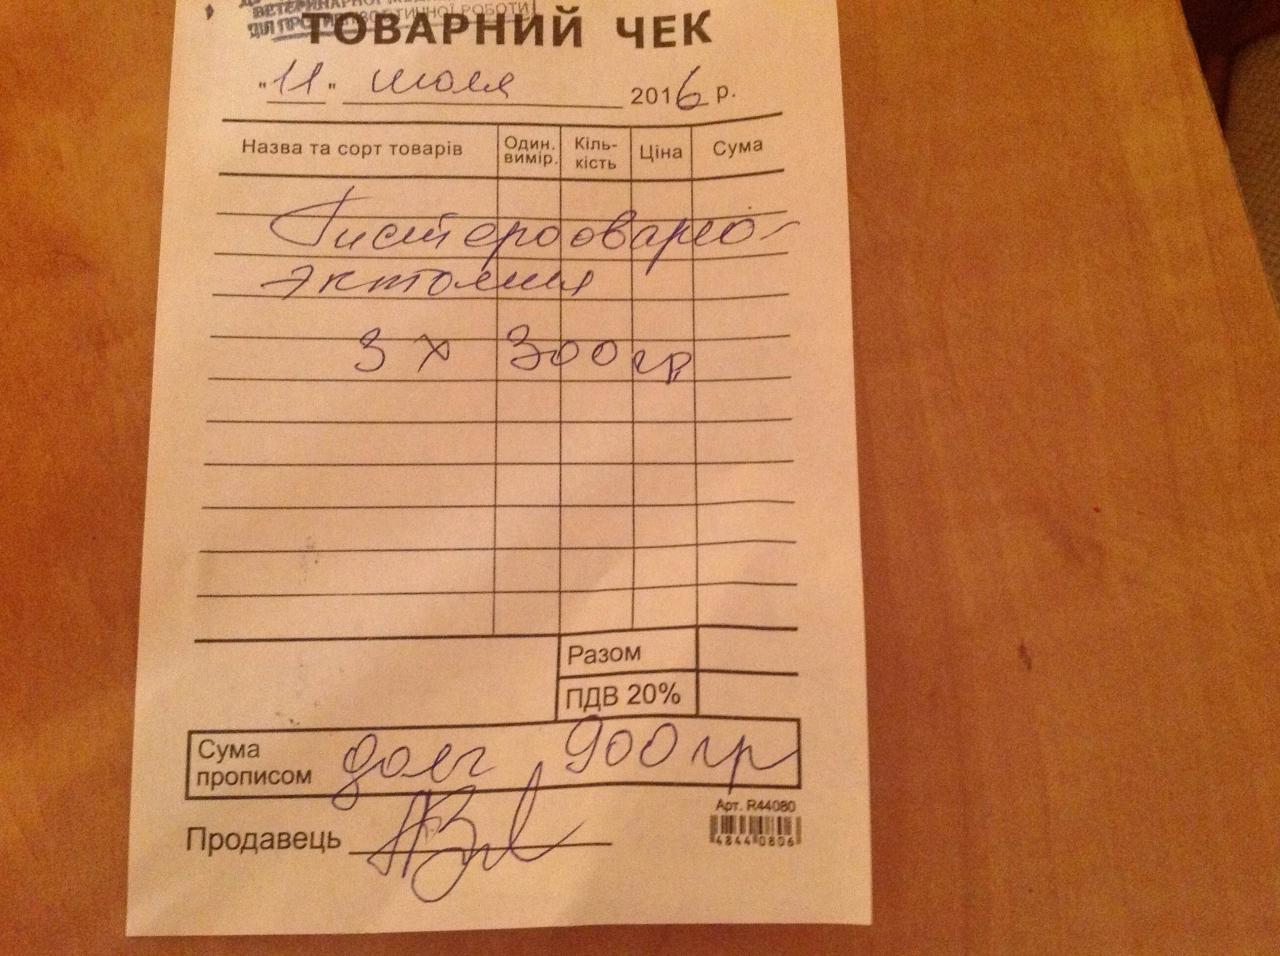 ВЕТЕРИНАРНОЇ
РОБОТИ
ТОВАРНИЙ ЧЕК
"11" июля 2016 р.
Назва та сорт товарів Один. вимір. Кіль-кість Ціна Сума
Гистероовариo-
эктомия
3 х 300 гр
Разом
ПДВ 20%
Сума прописом долг 900 гр
Продавець
Арт. R44080
48440806